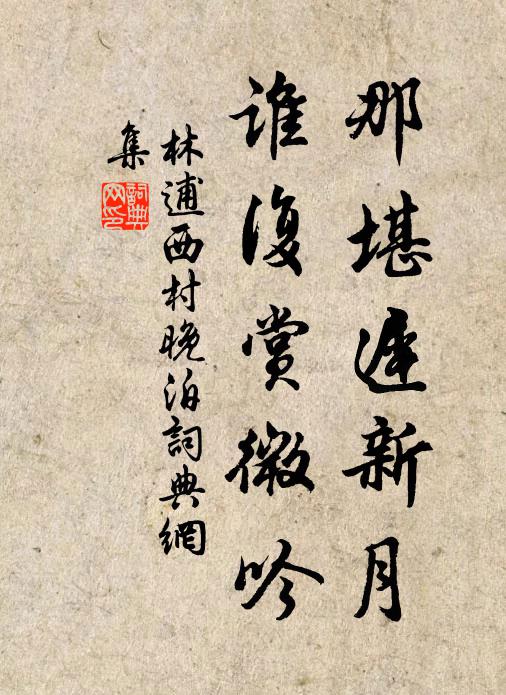 那堪遲新月
誰復賞微吟
林逋西村晚泊詞典網
集
詞典
网印